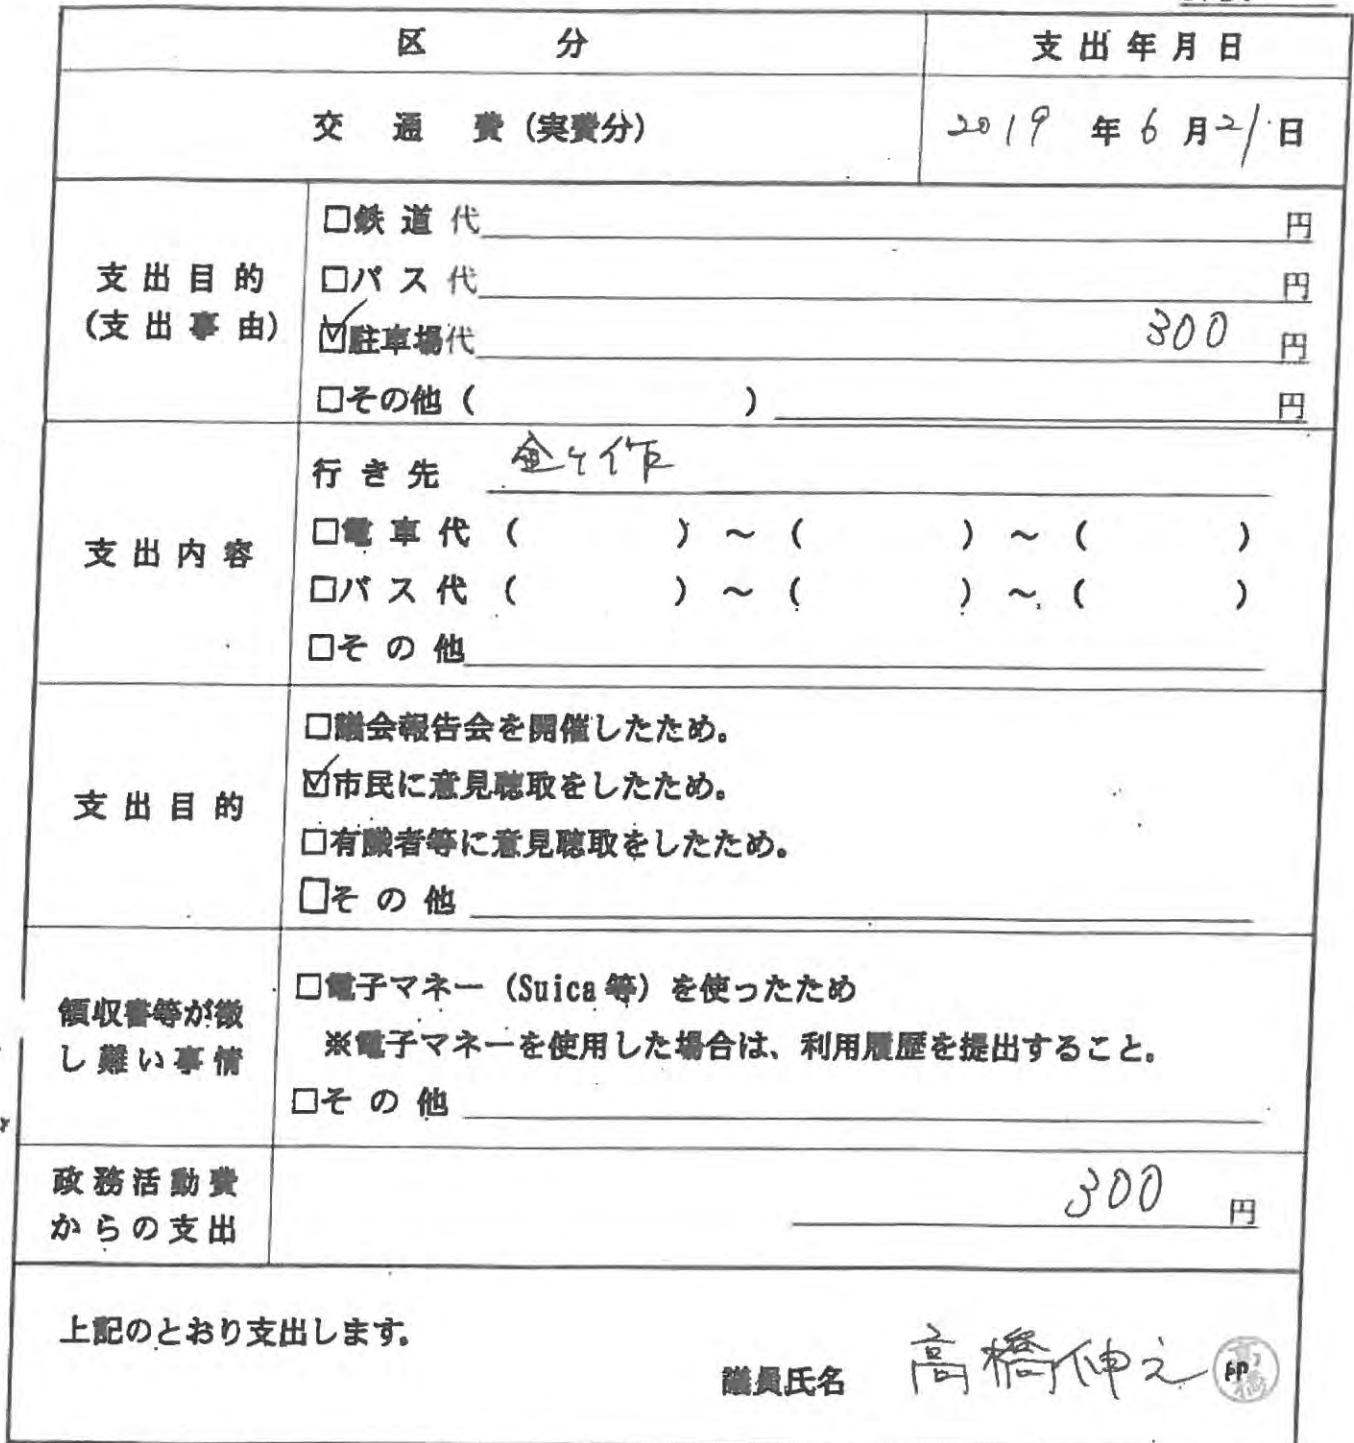 区 分
支出年月日
交 通 費(実費分)
2019 年 6 月 21 日
支出目的
(支出事由)
□鉄 道 代 円
□バ ス 代 円
☑駐車場代 300 円
□その他 ( ) 円
支出内容
行 き 先 金ケ作
□電 車 代 ( ) ~ ( ) ~ ( )
□バ ス 代 ( ) ~ ( ) ~ ( )
□そ の 他
支出目的
□議会報告会を開催したため。
☑市民に意見聴取をしたため。
□有識者等に意見聴取をしたため。
□そ の 他
領収書等が徴
し難い事情
□電子マネー (Suica 等) を使ったため
※電子マネーを使用した場合は、利用履歴を提出すること。
□そ の 他
政務活動費
からの支出
300 円
上記のとおり支出します。
議員氏名 高橋伸之 印 高橋